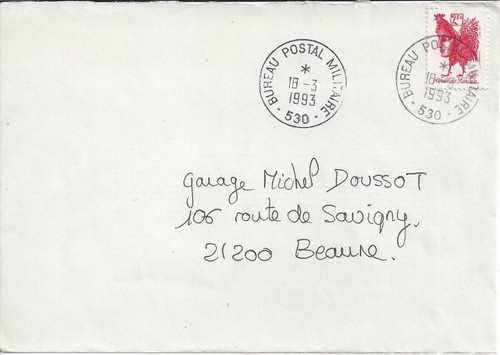 BUREAU POSTAL MILITAIRE
*
18-3
1993
- 530 -
BUREAU POSTAL MILITAIRE
*
18-3
1993
- 530 -
garage Michel DOUSSOT
106 route de Savigny.
21200 Beaune.